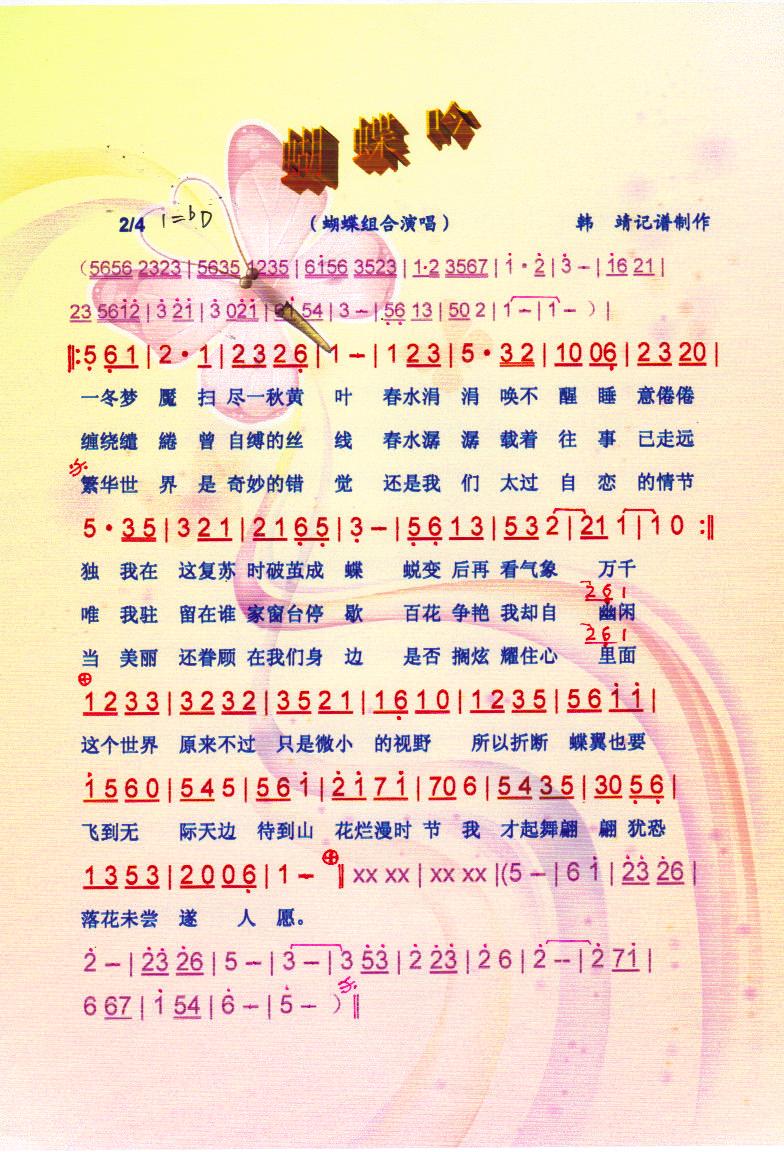 蝴蝶吟
2/4 1=bD （蝴蝶组合演唱） 韩 靖记谱制作
（5656 2323 | 5635 1235 | 6156 3523 | 1·2 3567 | 1·2 | 3 – | 16 21 |
23 5612 | 3 21 | 3 021 | 61 54 | 3 – | 56 13 | 50 2 | 1 – | 1 – ）|
‖: 5 61 | 2·1 | 23 26 | 1 – | 1 23 | 5·32 | 10 06 | 23 20 |
一冬梦 魇 扫 尽一秋黄 叶 春水涓 涓 唤不 醒 睡 意倦倦
缠绕缱 綣 曾 自缚的丝 线 春水潺 潺 载着 往 事 已走远
繁华世 界 是 奇妙的错 觉 还是我 们 太过 自 恋 的情节
5·35 | 3 21 | 21 65 | 3 – | 56 13 | 53 2 | 21 1 | 1 0 :‖
独 我在 这复苏 时破茧成 蝶 蜕变 后再 看气象 万千
261
唯 我驻 留在谁 家窗台停 歇 百花 争艳 我却自 幽闲
261
当 美丽 还眷顾 在我们身 边 是否 搁炫 耀住心 里面
12 33 | 32 32 | 35 21 | 16 10 | 12 35 | 56 11 |
这个世界 原来不过 只是微小 的视野 所以折断 蝶翼也要
15 60 | 54 5 | 56 1 | 21 71 | 70 6 | 54 35 | 30 56 |
飞到无 际天边 待到山 花烂漫时 节 我 才起舞翩 翩 犹恐
13 53 | 20 06 | 1 – ‖ xx xx | xx xx |(5 – | 6 1 | 23 26 |
落花未尝 遂 人 愿。
2 – | 23 26 | 5 – | 3 – | 3 53 | 2 23 | 2 6 | 2 -- | 2 71 |
6 67 | 1 54 | 6 – | 5 – ）‖